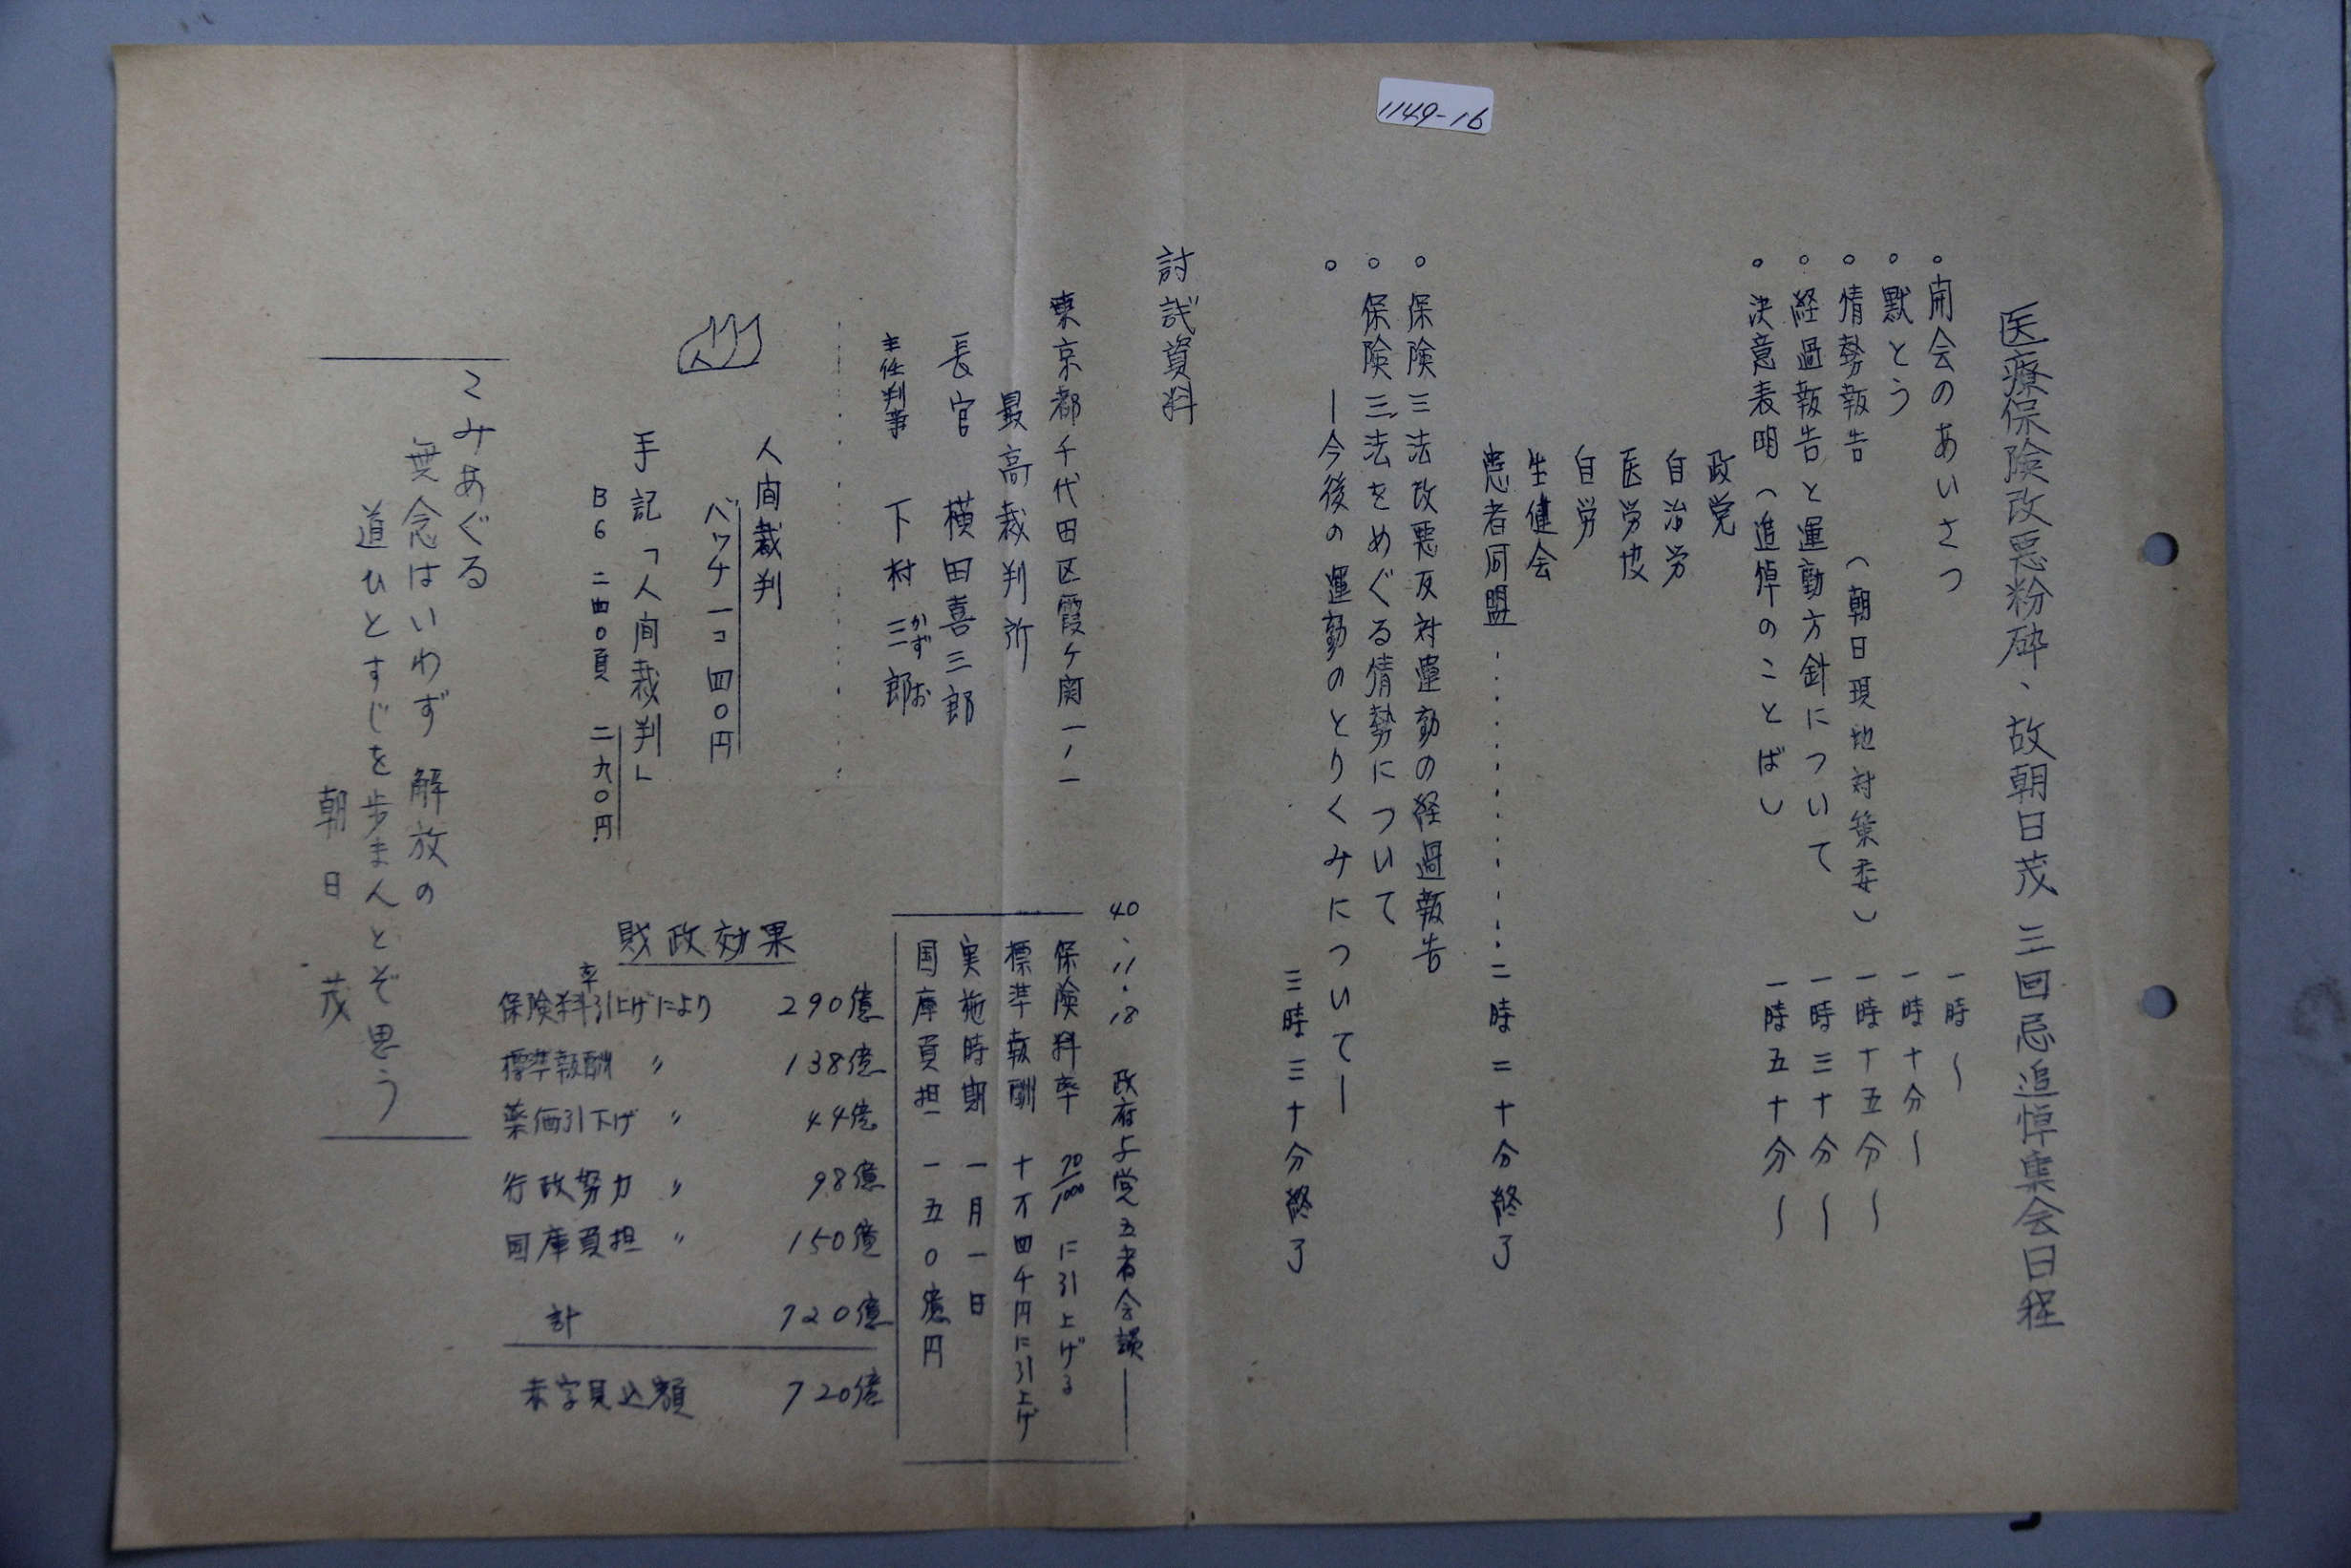 1149-16
医療保険改悪粉砕、故朝日茂三回忌追悼集会日程
。開会のあいさつ 一時〜
。黙とう 一時十分〜
。情勢報告 (朝日現地対策委) 一時十五分〜
。経過報告と運動方針について 一時三十分〜
。決意表明(追悼のことば) 一時五十分〜
政党
自治労
医労協
自労
生健会
患者同盟.............二時二十分終了
。保険三法改悪反対運動の経過報告
。保険三法をめぐる情勢について
。ー今後の運動のとりくみについてー
三時三十分終了
討議資料
東京都千代田区霞ヶ関一ノ一
最高裁判所
長官 横田喜三郎
主任判事 下村三郎
かずお
人間裁判
バッチ一コ 四〇円
手記「人間裁判」
B6 二四〇頁 二九〇円
人
40、11.18 政府よ党五者会議
保険料率 70/1000 に引上げる
標準報酬 十万四千円に引上げ
実施時期 一月一日
国庫負担 一五〇億円
財政効果
保険料率引上げにより 290億
標準報酬 〃 138億
薬価引下げ 〃 44億
行政努力 〃 98億
国庫負担 〃 150億
計 720億
赤字見込額 720億
こみあぐる
無念はいわず 解放の
道ひとすじを歩まんとぞ思う
朝日 茂